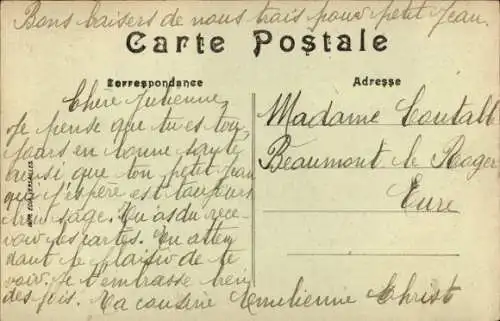 Bons baisers de nous trois pour petit Jean.
Carte Postale
Correspondance
Adresse
Chère Julienne,
Je pense que tu es tou
jours en bonne santé
ainsi que ton petit Jean
que j'espère est toujours
très sage. Tu as du rece
voir les cartes. En atten
dant le plaisir de te
voir. Je t'embrasse bien
des fois. Ta cousine Emilienne Christ
Madame Coutall
Beaumont le Roger
Eure